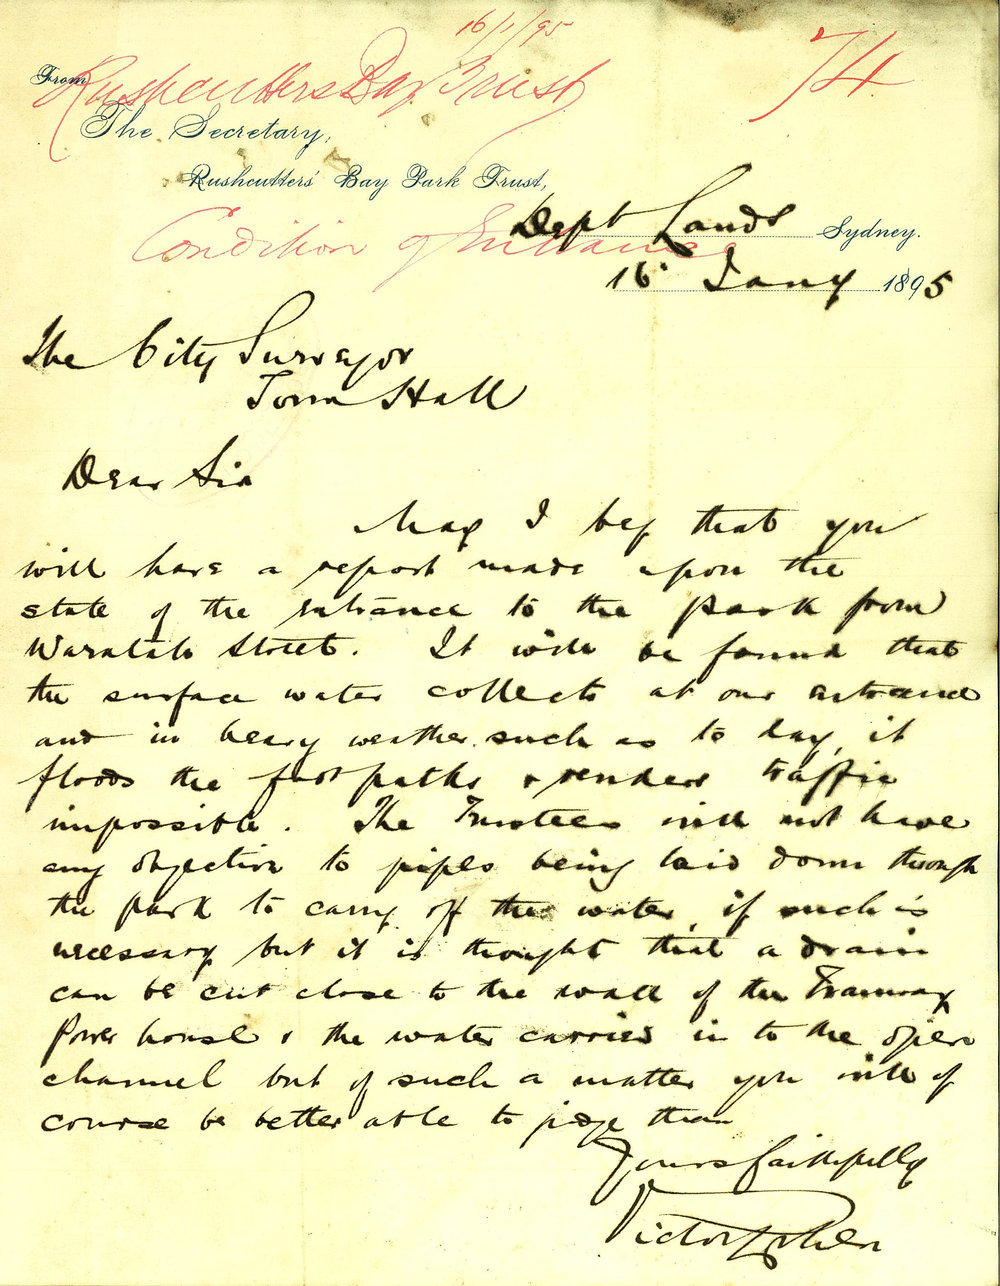 16/1/95
74
Rushcutters Bay Trust
From
The Secretary,
Rushcutters' Bay Park Trust,
Condition of Entrance
Dept Lands Sydney.
16 Jany 1895
The City Surveyor
Town Hall
Dear Sir
May I beg that you
will have a report made upon the
state of the entrance to the park from
Waratah Street. It will be found that
the surface water collects at our entrance
and in heavy weather such as to day, it
floods the foot paths & renders traffic
impossible. The Trustees will not have
any objection to pipes being laid down through
the park to carry off the water, if such is
necessary but it is thought that a drain
can be cut close to the wall of the Tramway
Power house & the water carried in to the open
channel but of such a matter you will of
course be better able to judge than
Yours faithfully
Victor